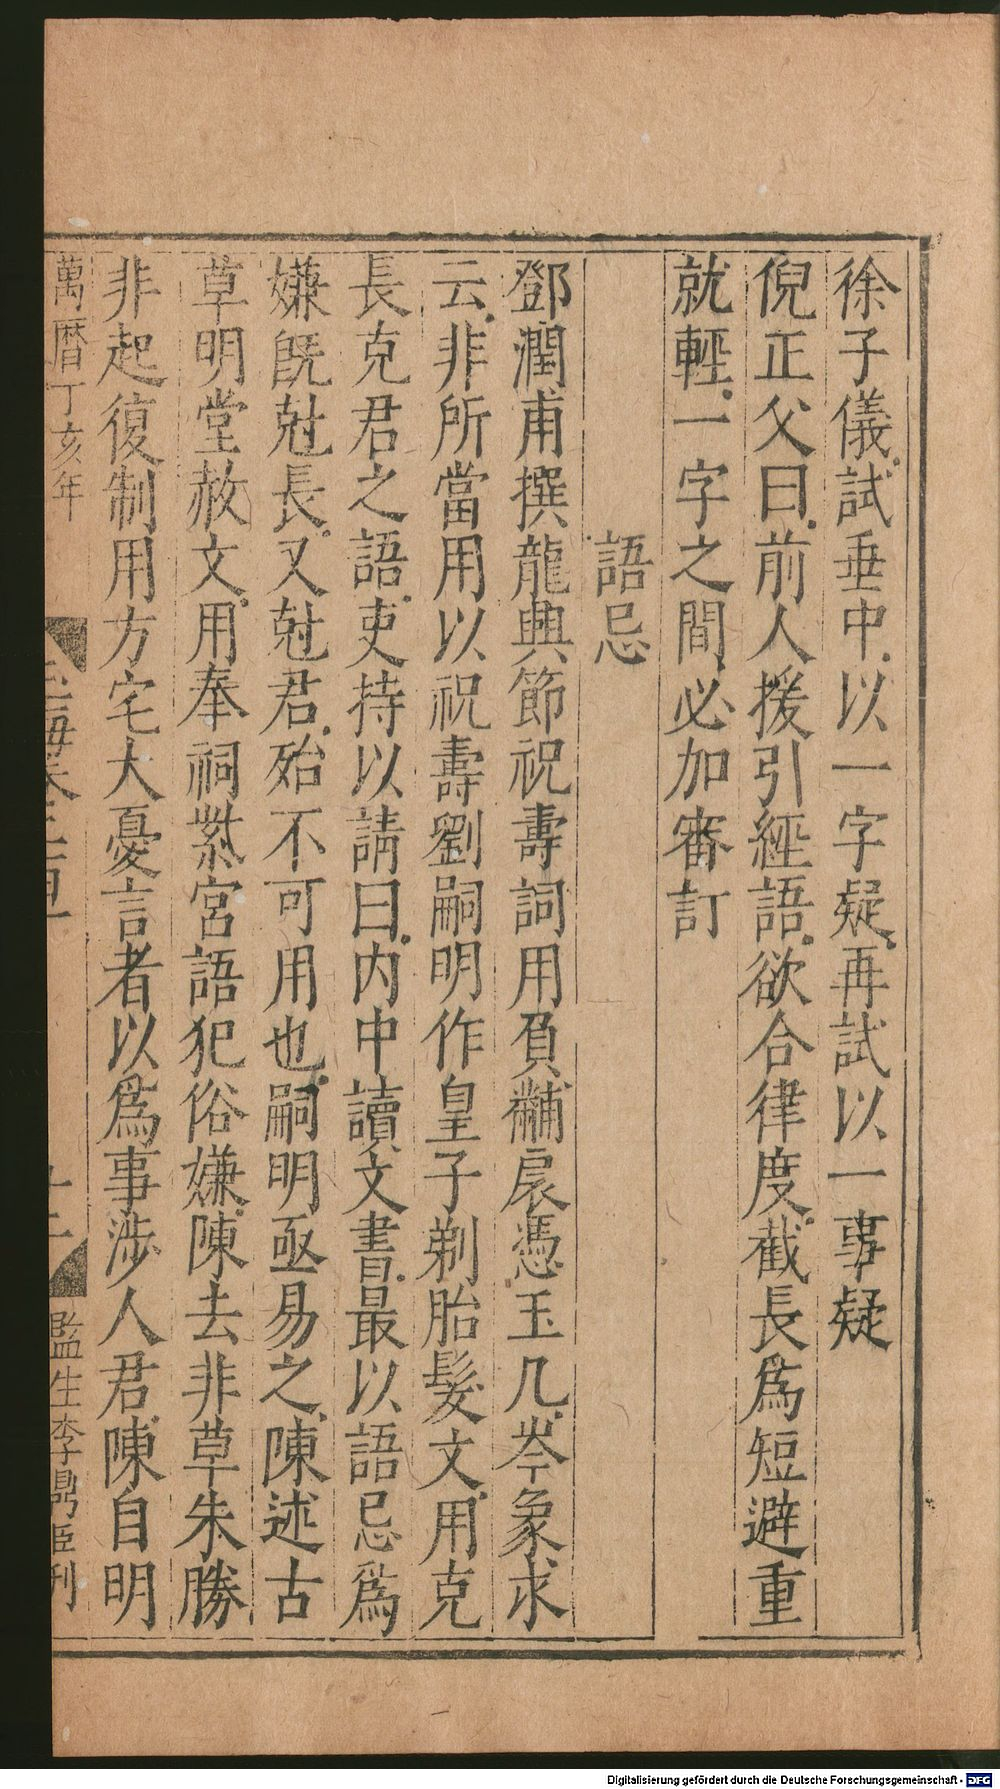 徐子儀試垂中以一字疑再試以一事疑
倪正父曰前人援引經語欲合律度截長爲短避重
就輕一字之間必加審訂
語忌
鄧潤甫撰龍興節祝壽詞用負黼扆憑玉几岑象求
云非所當用以祝壽劉嗣明作皇子剃胎髮文用克
長克君之語吏持以請曰内中讀文書最以語忌爲
嫌既尅長又尅君殆不可用也嗣明亟易之陳述古
草明堂赦文用奉祠紫宮語犯俗嫌陳去非草朱勝
非起復制用方宅大憂言者以爲事涉人君陳自明
萬曆丁亥年
十二
監生李鼎臣刊
Digitalisierung gefördert durch die Deutsche Forschungsgemeinschaft - DFG